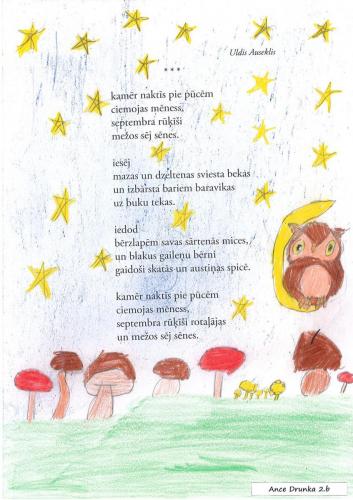 Uldis Auseklis
***
kamēr naktīs pie pūcēm
ciemojas mēness,
septembra rūķīši
mežos sēj sēnes.
iesēj
mazas un dzeltenas sviesta bekas
un izbārsta bariem baravikas
uz buku tekas.
iedod
bērzlapēm savas sārtenās mices,
un blakus gaileņu bērni
gaidoši skatās un austiņas spicē.
kamēr naktīs pie pūcēm
ciemojas mēness,
septembra rūķīši rotaļājas
un mežos sēj sēnes.
Ance Drunka 2.b